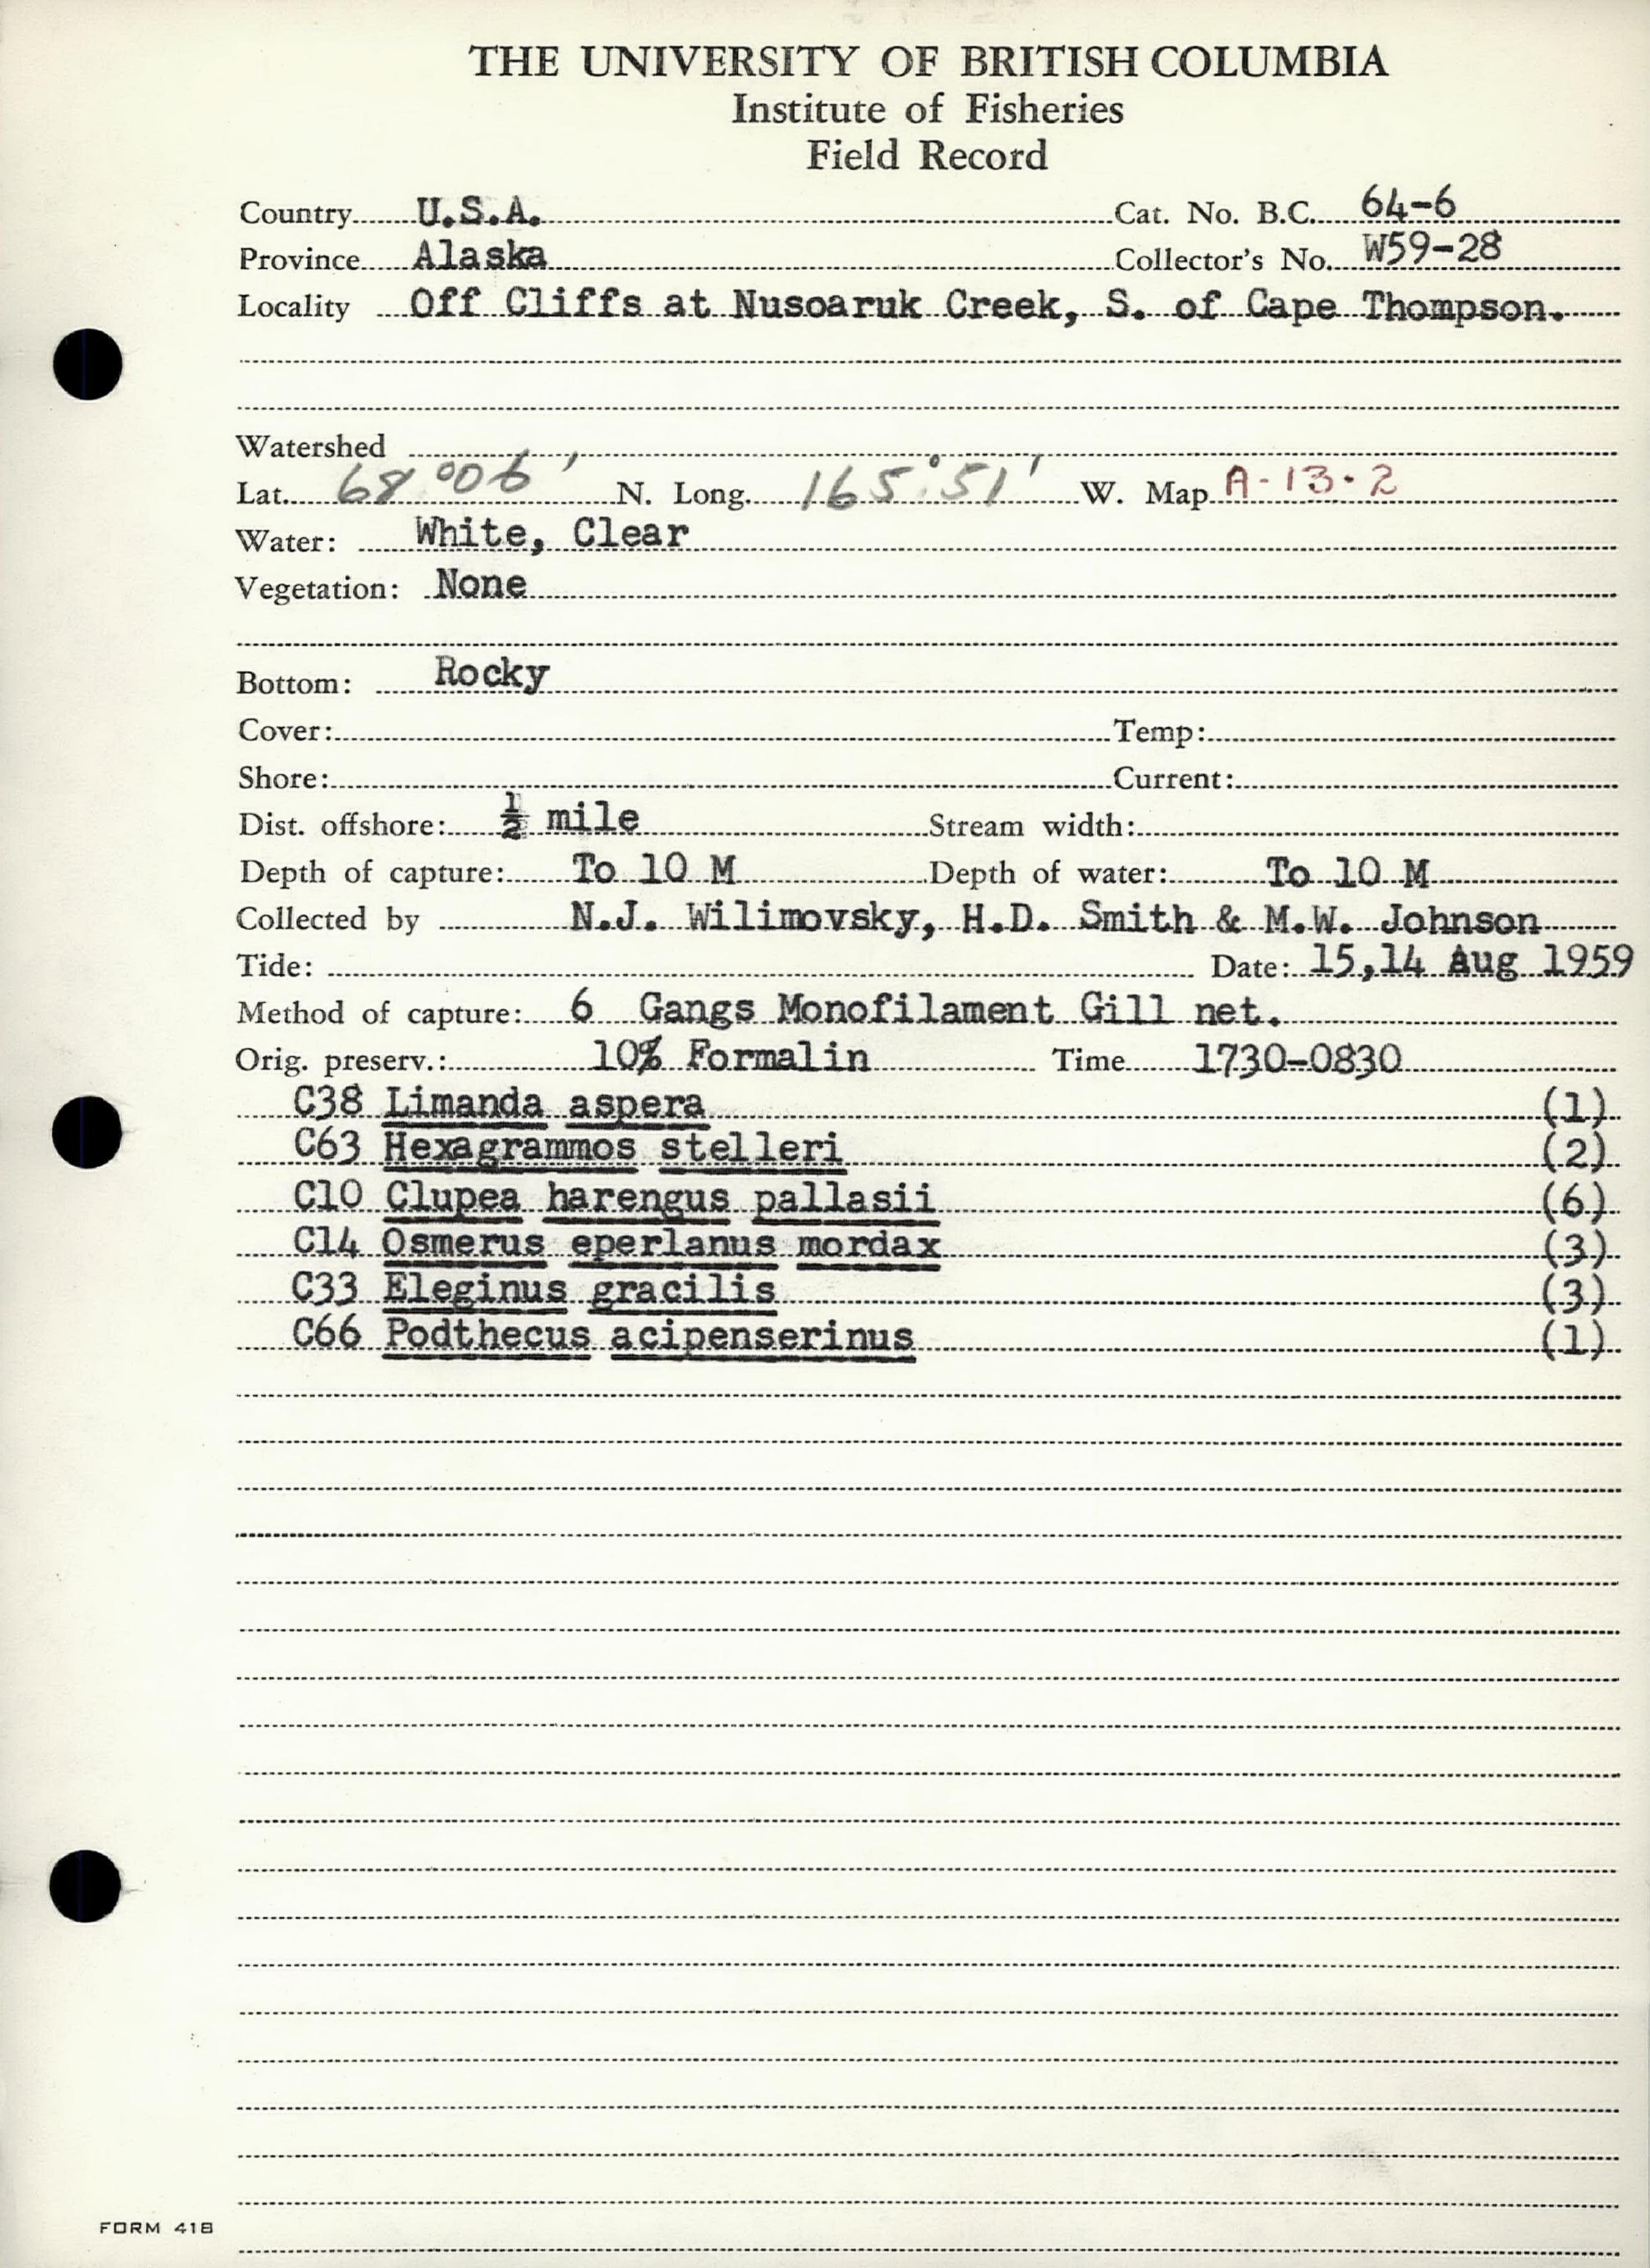 THE UNIVERSITY OF BRITISH COLUMBIA
Institute of Fisheries
Field Record
Country U.S.A. Cat. No. B.C. 64-6
Province Alaska Collector's No. W59-28
Locality Off Cliffs at Nusoaruk Creek, S. of Cape Thompson.
Watershed
Lat. 68°06' N. Long. 165°51' W. Map A-13.2
Water: White, Clear
Vegetation: None
Bottom: Rocky
Cover: Temp:
Shore: Current:
Dist. offshore: ½ mile Stream width:
Depth of capture: To 10 M Depth of water: To 10 M
Collected by N.J. Wilimovsky, H.D. Smith & M.W. Johnson
Tide: Date: 15,14 Aug 1959
Method of capture: 6 Gangs Monofilament Gill net.
Orig. preserv.: 10% Formalin Time 1730-0830
C38 Limanda aspera (1)
C63 Hexagrammos stelleri (2)
C10 Clupea harengus pallasii (6)
C14 Osmerus eperlanus mordax (3)
C33 Eleginus gracilis (3)
C66 Podthecus acipenserinus (1)
FORM 418